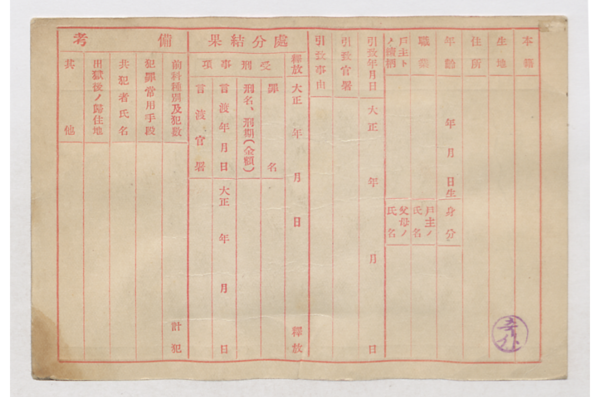 本籍
生地
住所
年齡 年 月 日生 身分
職業 戸主ノ氏名
戸主トノ續柄 父母ノ氏名
引致年月日 大正 年 月 日
引致官署
引致事由
處分結果
釋放 大正 年 月 日 釋放
受刑事項
罪名
刑名、刑期(金額)
言渡年月日 大正 年 月 日
言渡官署
備考
前科種別及犯數 計 犯
犯罪常用手段
共犯者氏名
出獄後ノ歸住地
其他